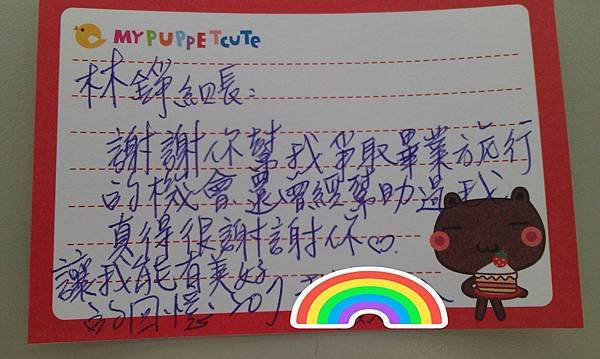 MY PUPPET CUTE
林錚組長：
謝謝你幫我爭取畢業旅行
的機會還曾經幫助過我
真得很謝謝你♡.
讓我能有美好
的回憶：207